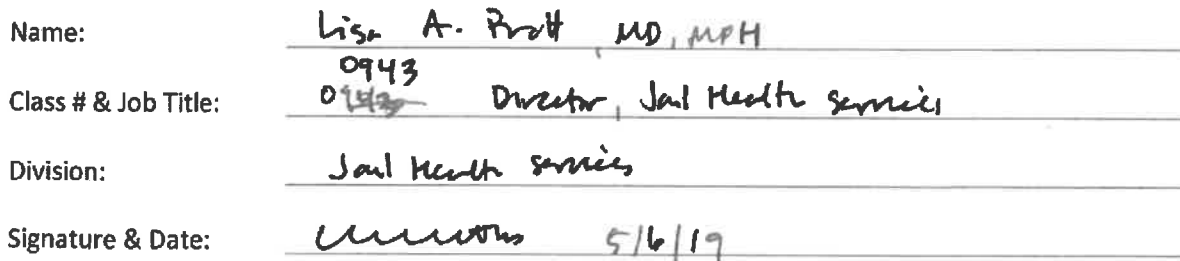 Name: Lisa A. Pratt, MD, MPH
0943
Class # & Job Title: Director, Jail Health Services
Division: Jail Health Services
Signature & Date: 5/6/19